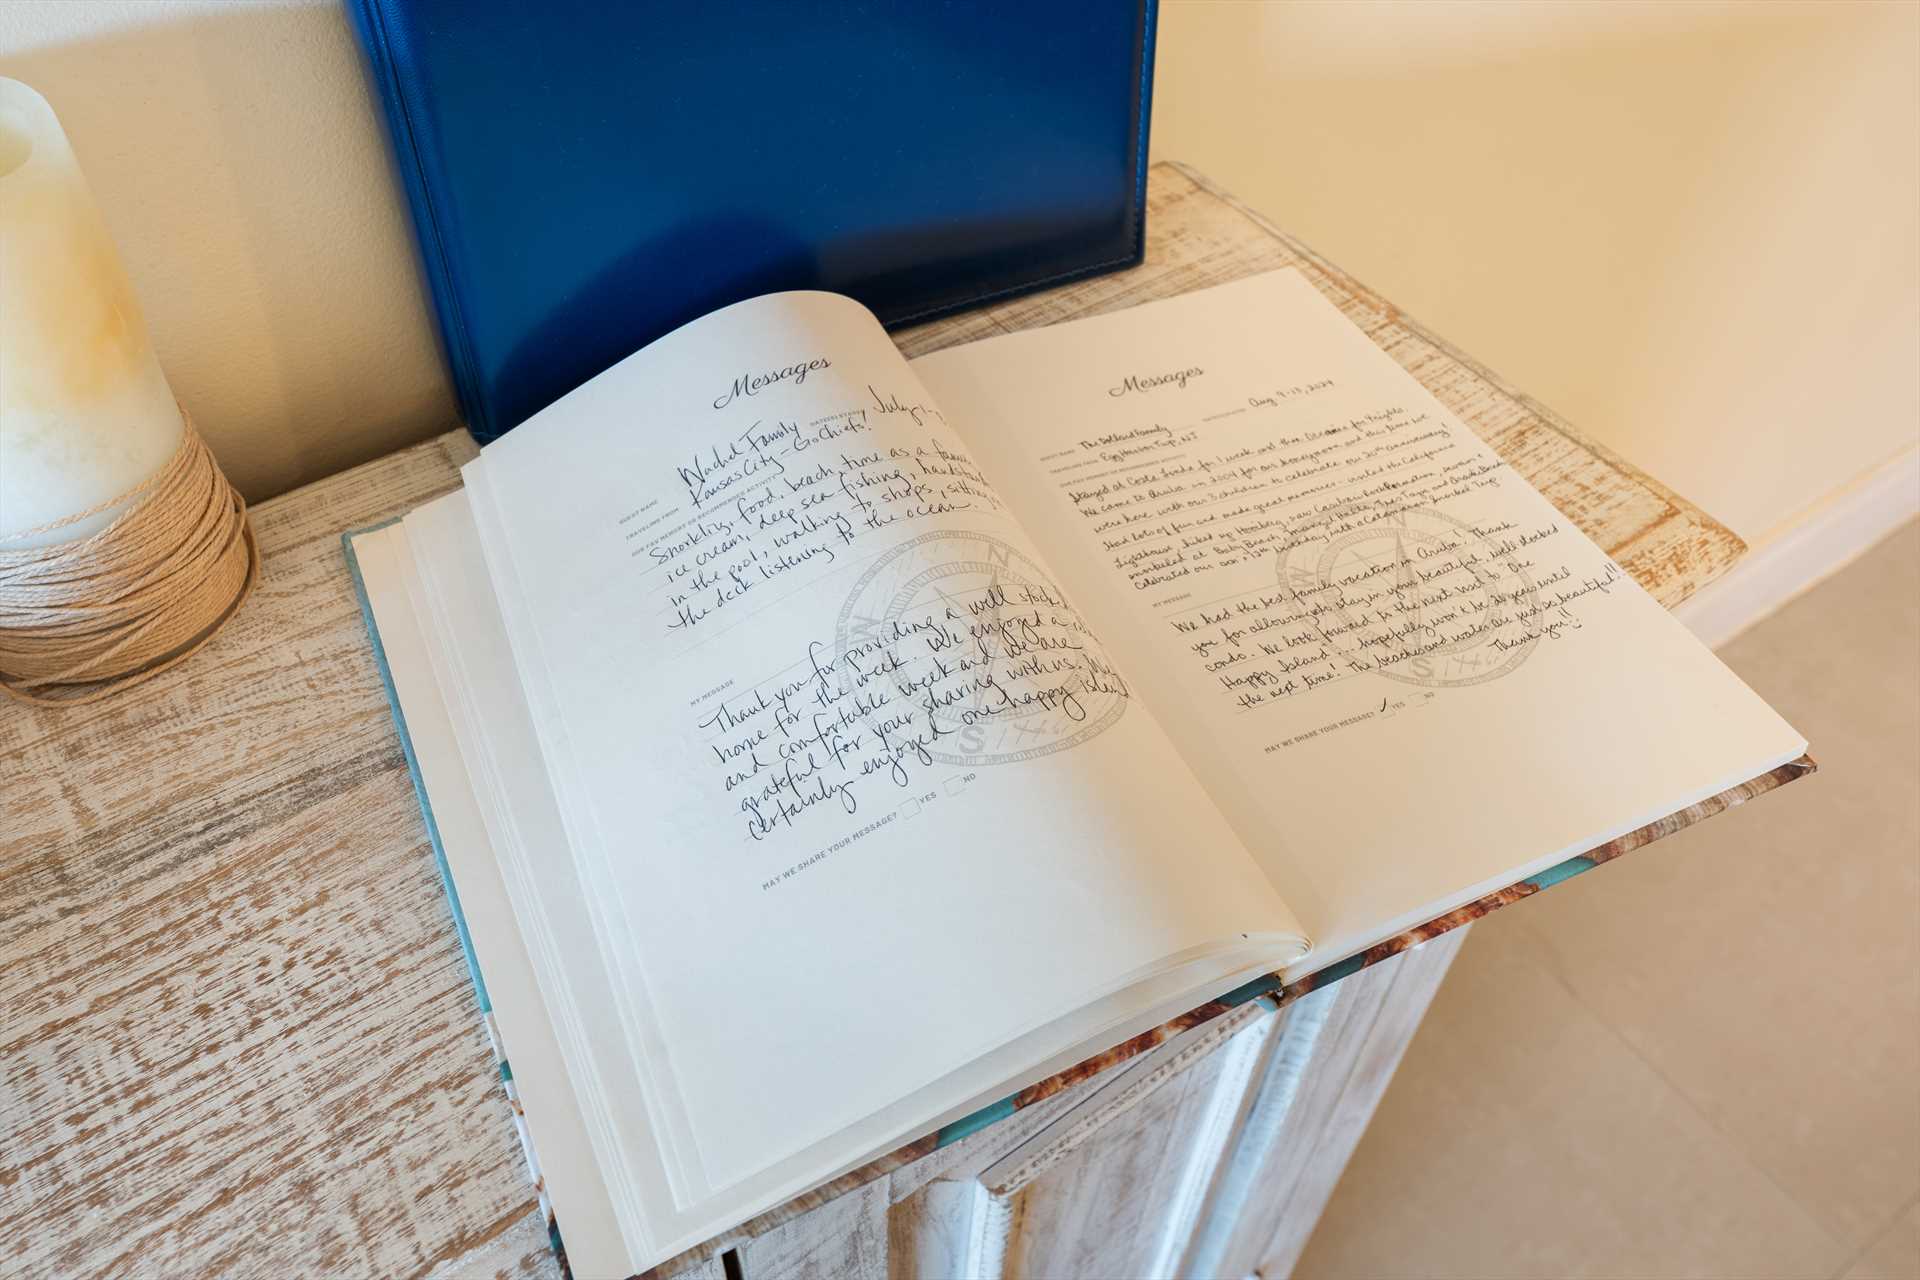 Messages
GUEST NAME Wachel Family DATE(S) STAYED July 1-
TRAVELING FROM Kansas City - Go Chiefs!
OUR FAV MEMENT OR RECOMMENDED ACTIVITY
Snorkling, food, beach, time as a family
ice cream, deep sea fishing, handstands
in the pool, walking to shops, sitting
the deck listening to the ocean.
MY MESSAGE
Thank you for providing a well stock
home for the week. We enjoyed a
and comfortable week and we are
grateful for your sharing with us. We
certainly enjoyed one happy island
MAY WE SHARE YOUR MESSAGE? YES NO
Messages
GUEST NAME The Family Aug 9-15, 2024
TRAVELING FROM Egg Harbor Twp, NJ
Stayed at Costa Linda for 1 week and then for 7 nights.
We came to Aruba in 2004 for our honeymoon and this time we
were here with our 3 children to celebrate our 20th anniversary!
Had lots of fun and made great memories - visited the California
Lighthouse, hiked up Hooiberg, saw Casibari Rock Formation,
snorkeled at Baby Beach, Mangel Halto, Tres Trapi and Arashi Beach
celebrated our son's 12th birthday with a Catamaran Snorkel Trip.
MY MESSAGE
We had the best family vacation in Aruba! Thank
you for allowing us to stay in your beautiful, well stocked
condo. We look forward to the next visit to "One
Happy Island"... hopefully won't be 20 years until
the next time! The beaches and water are just so beautiful!!
Thank you!!
MAY WE SHARE YOUR MESSAGE? ✓ YES NO
N
W
S
N
W
S